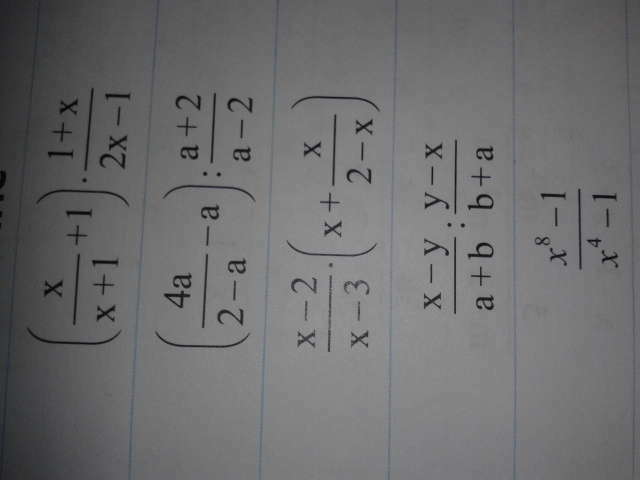 (x/(x+1) + 1) · (1+x)/(2x−1)
(4a/(2−a) − a) : (a+2)/(a−2)
(x−2)/(x−3) · (x + x/(2−x))
(x−y)/(a+b) : (y−x)/(b+a)
(x⁸−1)/(x⁴−1)